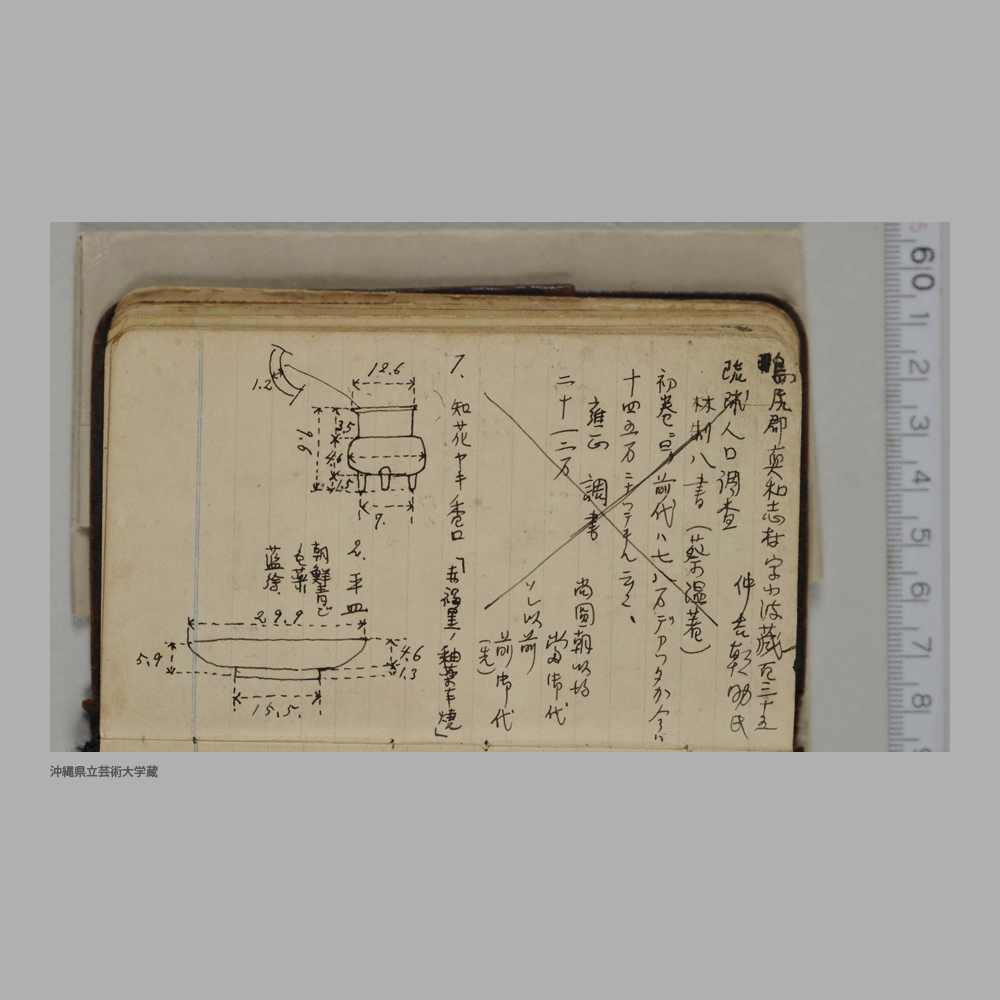 島尻郡真和志村字小波蔵百三十五
仲吉朝助氏
琉球人口調査
林制八書(蔡温著)
初巻ニ前代ハ七八万デアッタが今ハ
十四五万
雍正 調書
二十一二万
尚圓朝以均
当御代
以前
前御代
(先)
1. 知花ヤキ香口「赤褐黒ノ釉薬ナキ焼」
12.6
1.2
3.5
4.6
1.5
9.6
9.
2. 平皿
朝鮮青ど
色薬
藍絵
29.9
5.9
4.6
1.3
15.5.
60 1 2 3 4 5 6 7 8
沖縄県立芸術大学蔵